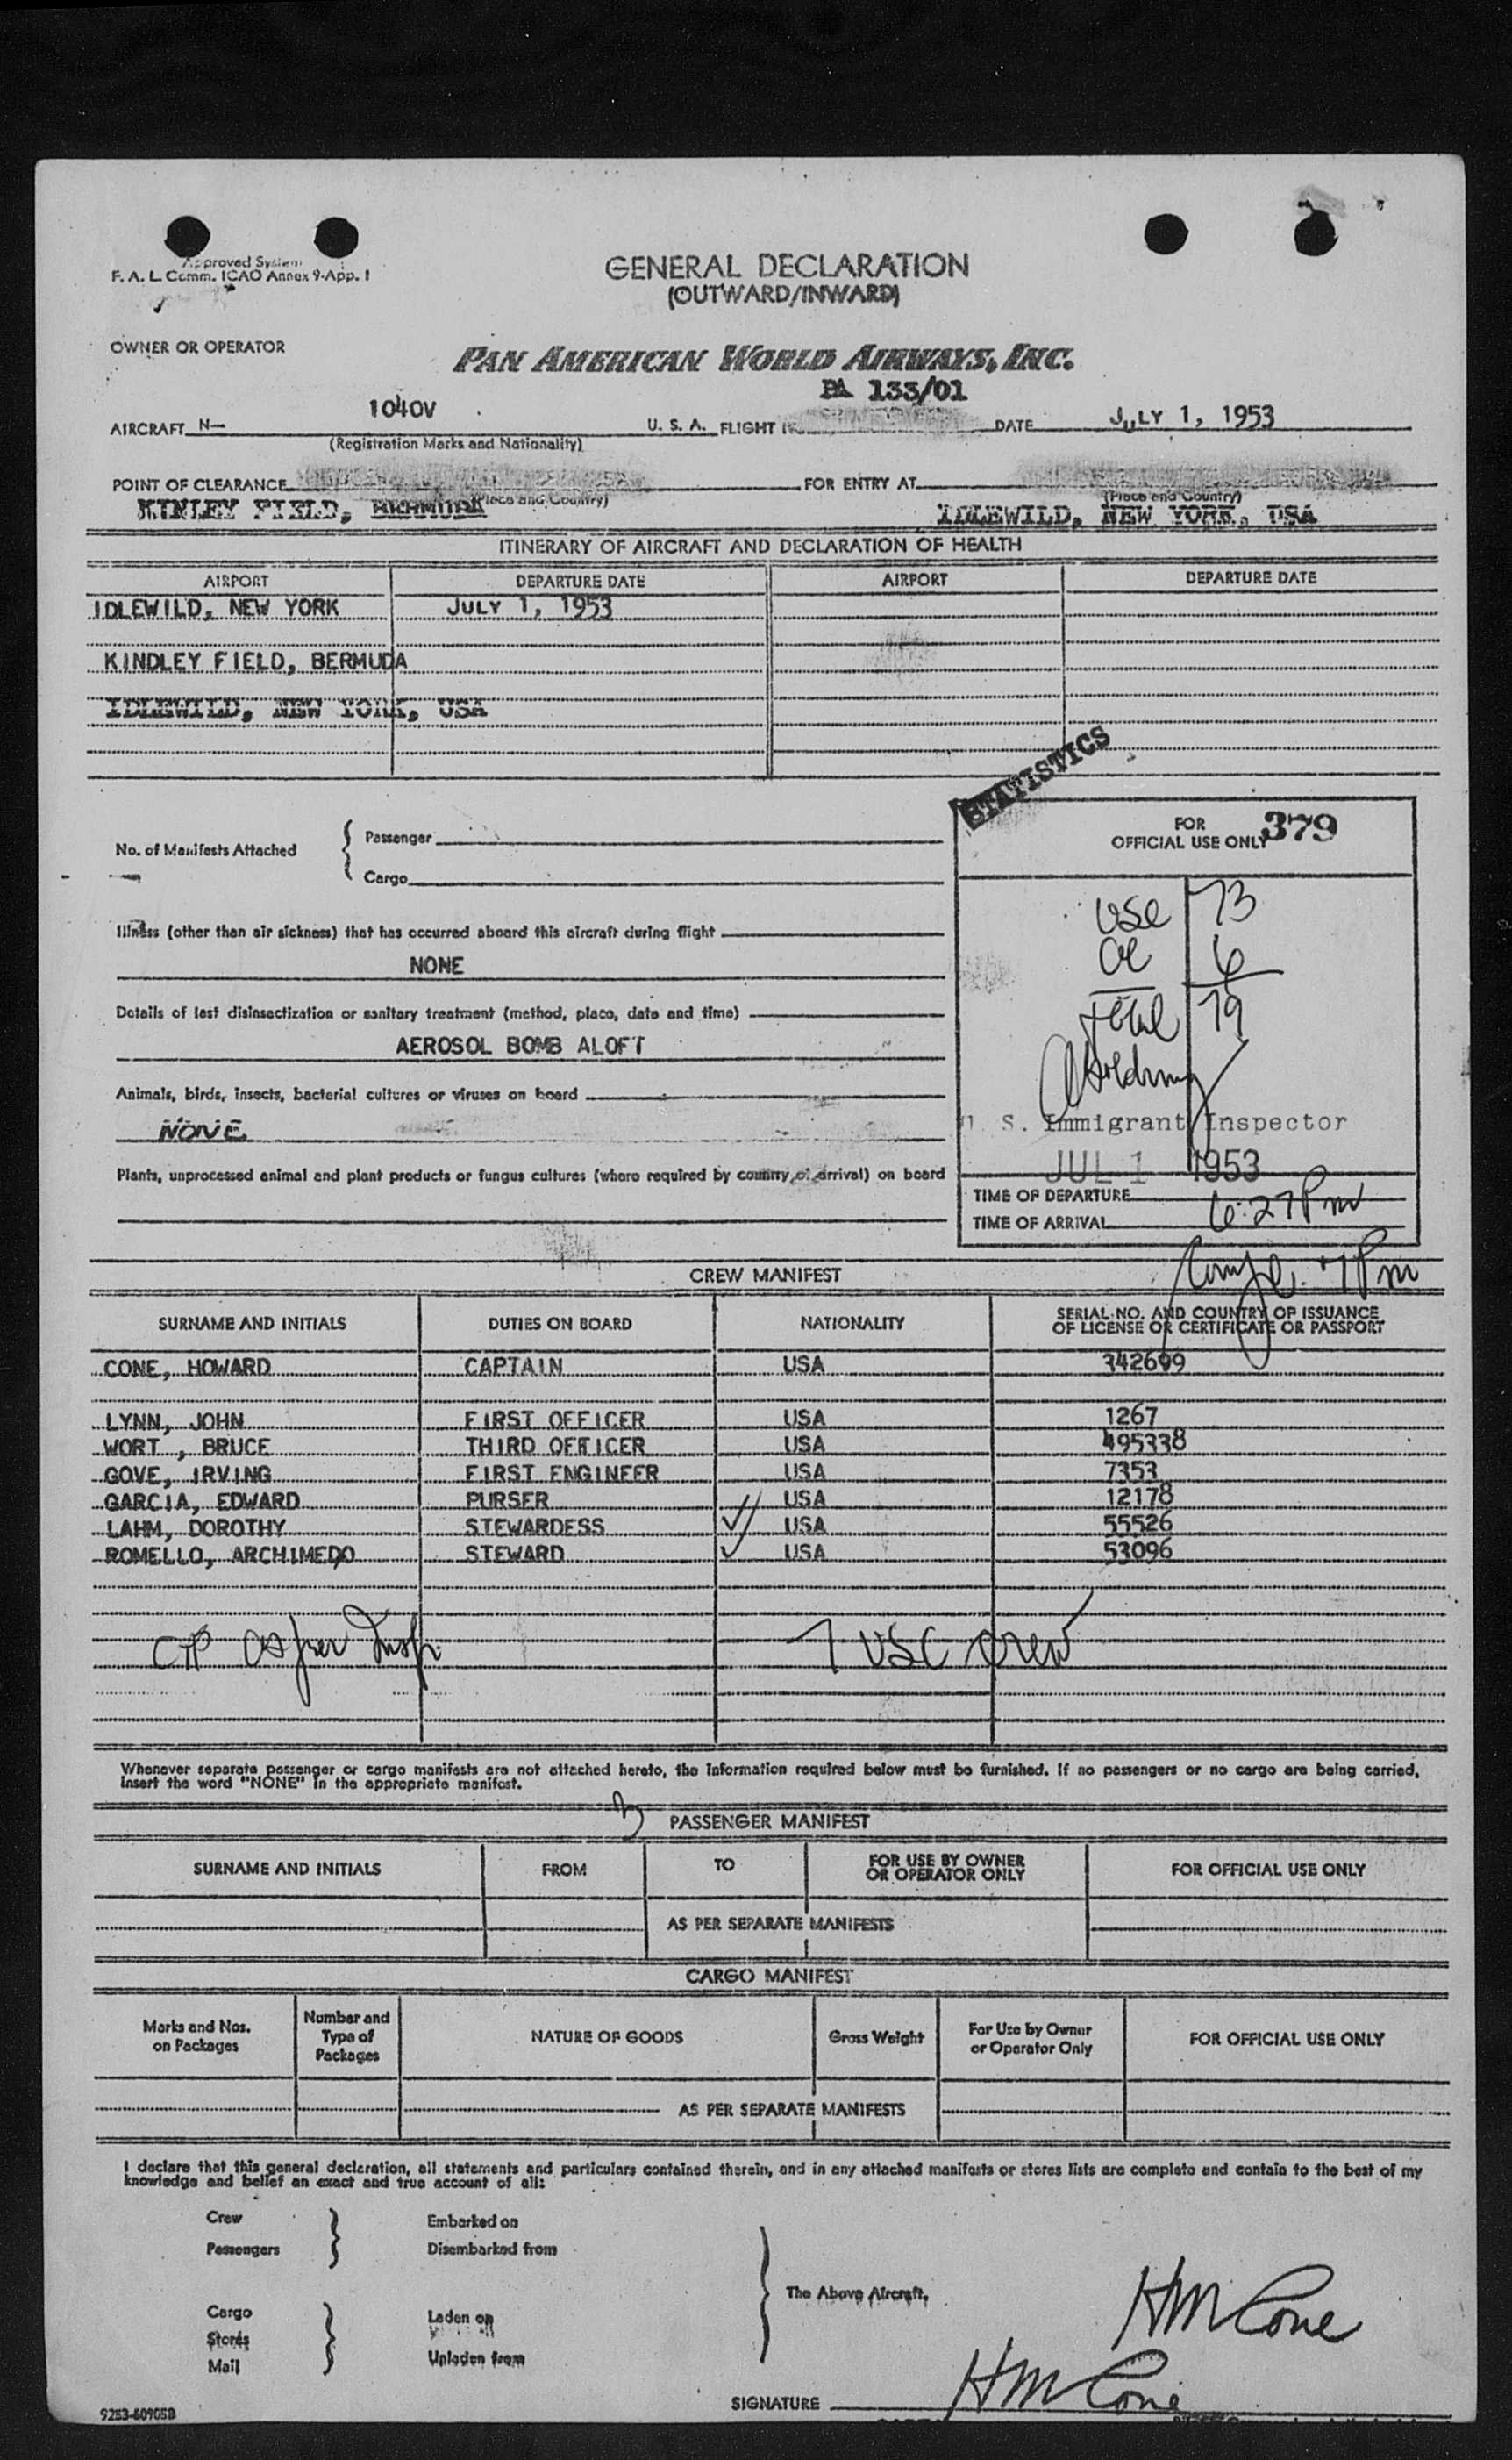 Approved System
F. A. L. Comm. ICAO Annex 9-App. 1
GENERAL DECLARATION
(OUTWARD/INWARD)
OWNER OR OPERATOR
PAN AMERICAN WORLD AIRWAYS, INC.
PA 133/01
AIRCRAFT N— 1040V U. S. A. FLIGHT DATE JULY 1, 1953
(Registration Marks and Nationality)
POINT OF CLEARANCE FOR ENTRY AT
(Place and Country) (Place and Country)
KINLEY FIELD, BERMUDA IDLEWILD, NEW YORK, USA
ITINERARY OF AIRCRAFT AND DECLARATION OF HEALTH
AIRPORT DEPARTURE DATE AIRPORT DEPARTURE DATE
IDLEWILD, NEW YORK JULY 1, 1953
KINDLEY FIELD, BERMUDA
IDLEWILD, NEW YORK, USA
STATISTICS
No. of Manifests Attached
Passenger
Cargo
FOR
OFFICIAL USE ONLY 379
USC 73
al 6
total 79
Illness (other than air sickness) that has occurred aboard this aircraft during flight
NONE
Details of last disinsectization or sanitary treatment (method, place, date and time)
AEROSOL BOMB ALOFT
Animals, birds, insects, bacterial cultures or viruses on board
NONE
Plants, unprocessed animal and plant products or fungus cultures (where required by country of arrival) on board
U. S. Immigrant Inspector
JUL 1 1953
TIME OF DEPARTURE
TIME OF ARRIVAL 6:27 Pm
7 Pm
CREW MANIFEST
SURNAME AND INITIALS DUTIES ON BOARD NATIONALITY SERIAL NO. AND COUNTRY OF ISSUANCE
OF LICENSE OR CERTIFICATE OR PASSPORT
CONE, HOWARD CAPTAIN USA 342699
LYNN, JOHN FIRST OFFICER USA 1267
WORT , BRUCE THIRD OFFICER USA 495338
GOVE, IRVING FIRST ENGINEER USA 7353
GARCIA, EDWARD PURSER USA 12178
LAHM, DOROTHY STEWARDESS USA 55526
ROMELLO, ARCHIMEDO STEWARD USA 53096
as per Insp. 7 USC crew
Whenever separate passenger or cargo manifests are not attached hereto, the information required below must be furnished. If no passengers or no cargo are being carried,
insert the word "NONE" in the appropriate manifest.
3 PASSENGER MANIFEST
SURNAME AND INITIALS FROM TO FOR USE BY OWNER
OR OPERATOR ONLY FOR OFFICIAL USE ONLY
AS PER SEPARATE MANIFESTS
CARGO MANIFEST
Marks and Nos.
on Packages
Number and
Type of
Packages
NATURE OF GOODS
Gross Weight
For Use by Owner
or Operator Only
FOR OFFICIAL USE ONLY
AS PER SEPARATE MANIFESTS
I declare that this general declaration, all statements and particulars contained therein, and in any attached manifests or stores lists are complete and contain to the best of my
knowledge and belief an exact and true account of all:
Crew Embarked on
Passengers Disembarked from
The Above Aircraft.
Cargo Laden on
Stores
Mail Unladen from
HM Cone
SIGNATURE HM Cone
9283-60905B